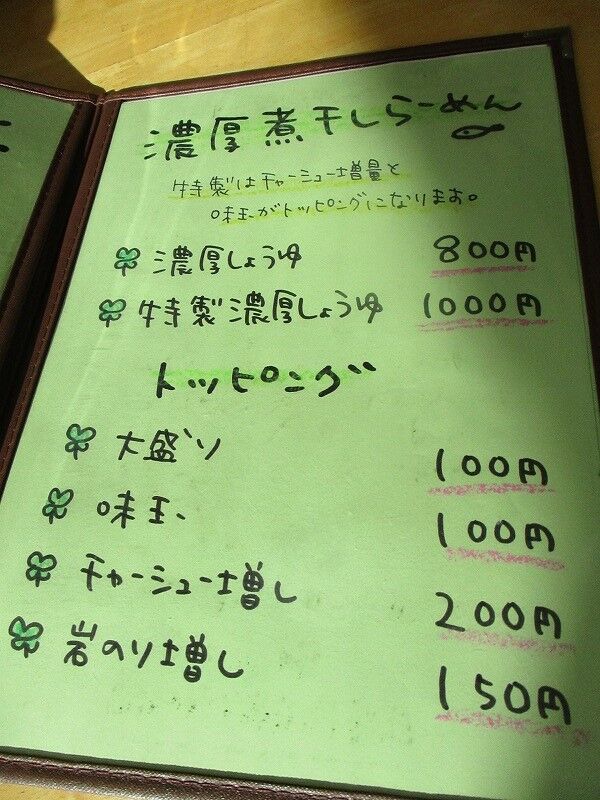 濃厚煮干しらーめん
特製はチャーシュー増量と
味玉がトッピングになります。
濃厚しょうゆ 800円
特製濃厚しょうゆ 1000円
トッピング
大盛り 100円
味玉 100円
チャーシュー増し 200円
岩のり増し 150円